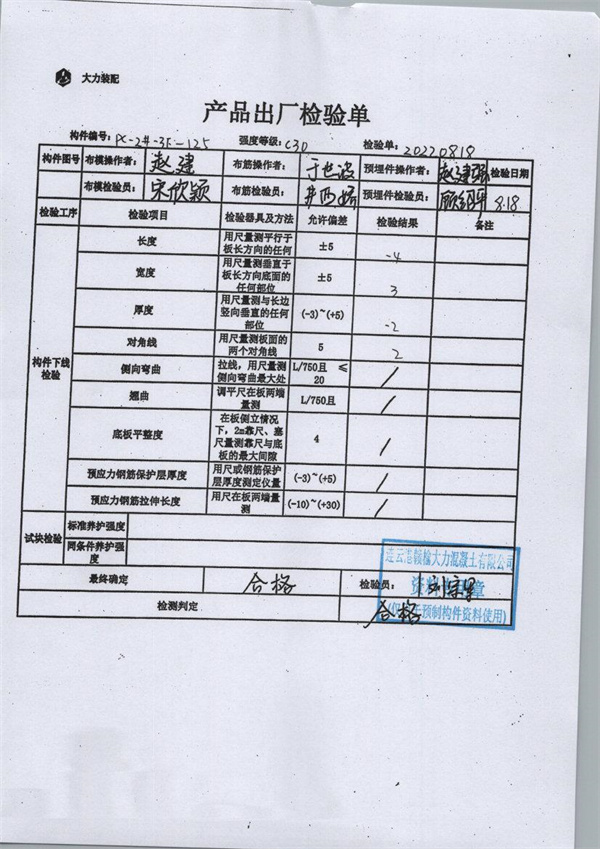 大力装配
产品出厂检验单
构件编号: PC-2#-3F-125 强度等级: C30 检验单: 20220818
构件图号 布模操作者: 赵建 布筋操作者: 于世波 预埋件操作者: 赵建 检验日期
布模检验员: 宋欣颖 布筋检验员: 预埋件检验员: 8.18
检验工序 检验项目 检验器具及方法 允许偏差 检验结果 备注
构件下线检验
长度 用尺量测平行于板长方向的任何 ±5 -4
宽度 用尺量测垂直于板长方向底面的任何部位 ±5 3
厚度 用尺量测与长边竖向垂直的任何部位 (-3)~(+5) -2
对角线 用尺量测板面的两个对角线 5 2
侧向弯曲 拉线，用尺量测侧向弯曲最大处 L/750且 ≤20 /
翘曲 调平尺在板两端量测 L/750且 /
底板平整度 在板侧立情况下，2m靠尺、塞尺量测靠尺与底板的最大间隙 4 /
预应力钢筋保护层厚度 用尺或钢筋保护层厚度测定仪量 (-3)~(+5) /
预应力钢筋拉伸长度 用尺在板两端量测 (-10)~(+30) /
试块检验 标准养护强度
同条件养护强度
连云港赣榆大力混凝土有限公司
最终确定 合格 检验员:
资料 章
检测判定 合格
预制构件资料使用)